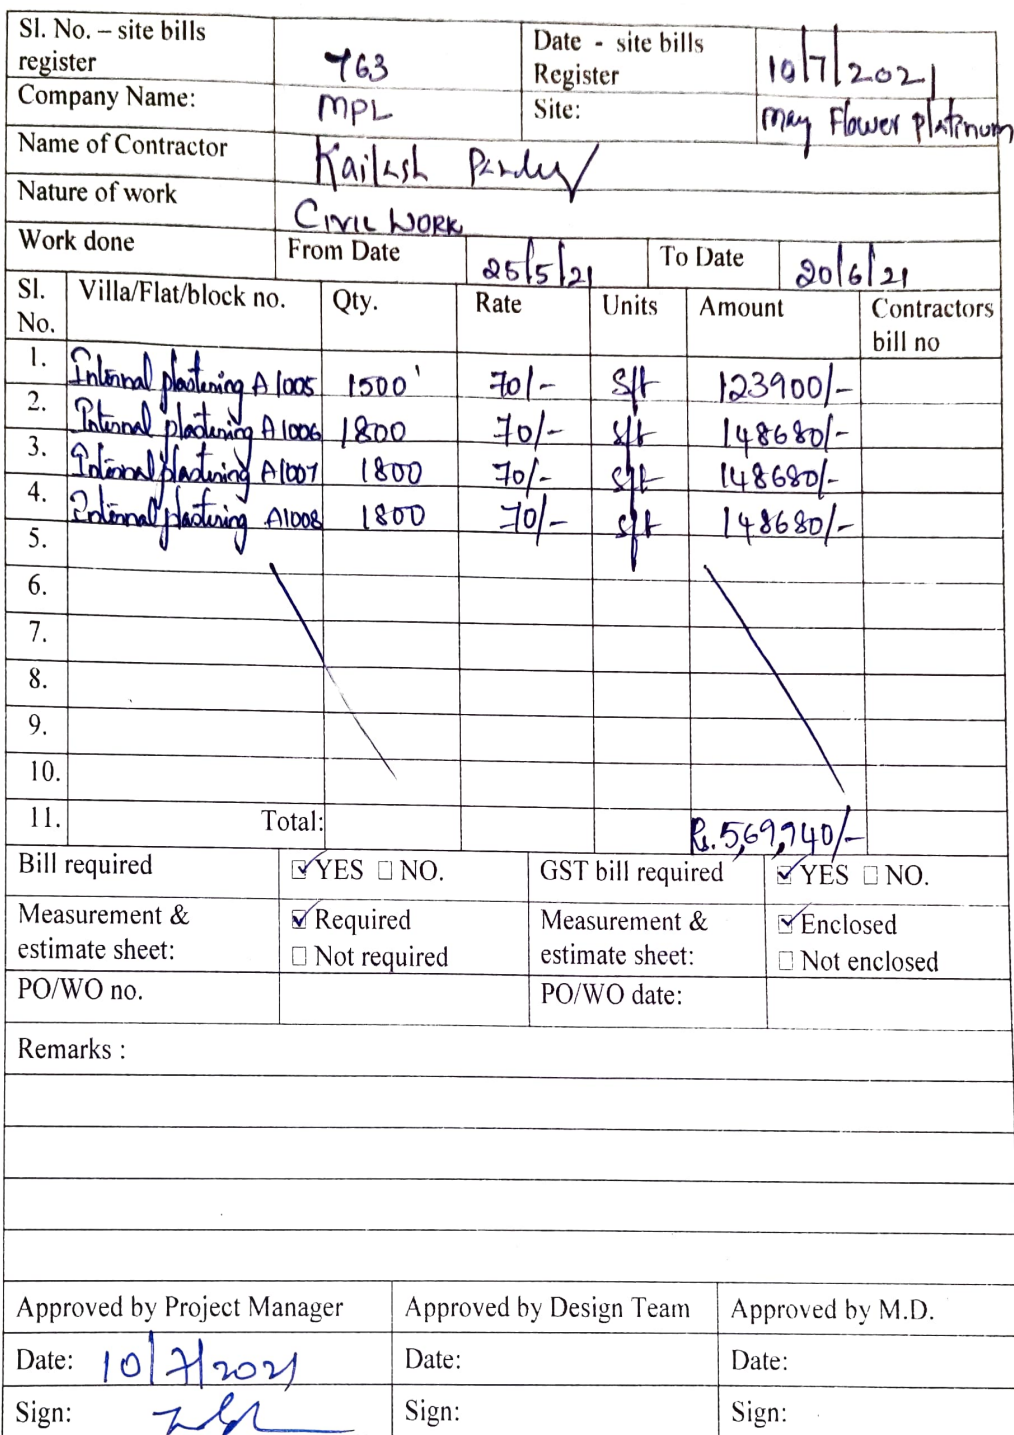 Sl. No. – site bills register 763 Date - site bills Register 10/7/2021
Company Name: MPL Site: May Flower platinum
Name of Contractor Kailash Pandey
Nature of work CIVIL WORK
Work done From Date 25/5/21 To Date 20/6/21
Sl. No. Villa/Flat/block no. Qty. Rate Units Amount Contractors bill no
1. Internal plastening A1005 1500' 70/- Sft 123900/-
2. Internal plastening A1006 1800 70/- Sft 148680/-
3. Internal plastening A1007 1800 70/- Sft 148680/-
4. Internal plastening A1008 1800 70/- Sft 148680/-
5.
6.
7.
8.
9.
10.
11. Total: Rs. 5,69,940/-
Bill required YES NO. GST bill required YES NO.
Measurement & estimate sheet: Required Measurement & estimate sheet: Enclosed
Not required Not enclosed
PO/WO no. PO/WO date:
Remarks :
Approved by Project Manager Approved by Design Team Approved by M.D.
Date: 10/7/2021 Date: Date:
Sign: Sign: Sign: